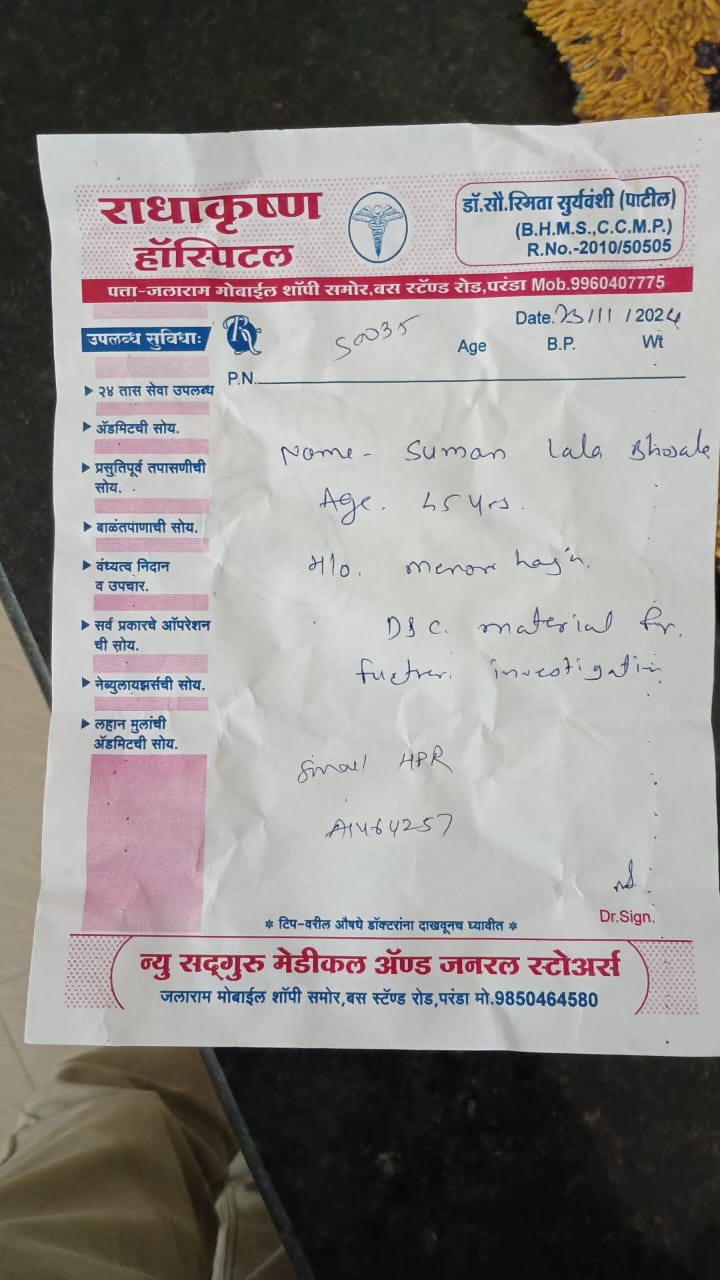 राधाकृष्ण
हॉस्पिटल
डॉ.सौ.स्मिता सुर्यवंशी (पाटील)
(B.H.M.S.,C.C.M.P.)
R.No.-2010/50505
पत्ता-जलाराम मोबाईल शॉपी समोर,बस स्टॅण्ड रोड,परंडा Mob.9960407775
उपलब्ध सुविधाः
Date. 23/11/2024
Age B.P. Wt
P.N.
▶ २४ तास सेवा उपलब्ध
▶ ॲडमिटची सोय.
▶ प्रसुतिपूर्व तपासणीची
सोय.
▶ बाळंतपाणाची सोय.
▶ वंध्यत्व निदान
व उपचार.
▶ सर्व प्रकारचे ऑपरेशन
ची सोय.
▶ नेब्युलायझर्सची सोय.
▶ लहान मुलांची
ॲडमिटची सोय.
Name - Suman Lala Bhosale
Age. 45 yrs.
M/o.
D&C. material for.
investigation
Small HPR
A1464257
* टिप-वरील औषधे डॉक्टरांना दाखवूनच घ्यावीत *
Dr.Sign.
न्यु सद्गुरु मेडीकल ॲण्ड जनरल स्टोअर्स
जलाराम मोबाईल शॉपी समोर,बस स्टॅण्ड रोड,परंडा मो.9850464580